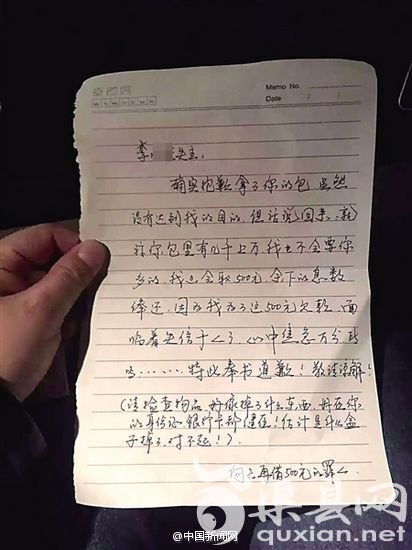 Memo No.
Date / /
李 失主:
确实抱歉拿了你的包。虽然
没有达到我的目的。但话说回来,就
称你包里有几千上万,我也不会要你
多的,我也会取500元,余下的悉数
奉还,因为我为了这500元欠款,面
临着失信于人了,心中焦急万分
吗……特此奉书道歉!敬请谅解!
(请检查物品,好像掉了什么东西,好在你
的身份证、银行卡都健在!估计是什么盒
子掉了,对不起!)
向 再借500元的罪人
@中国新闻网
渠县网
quxian.com